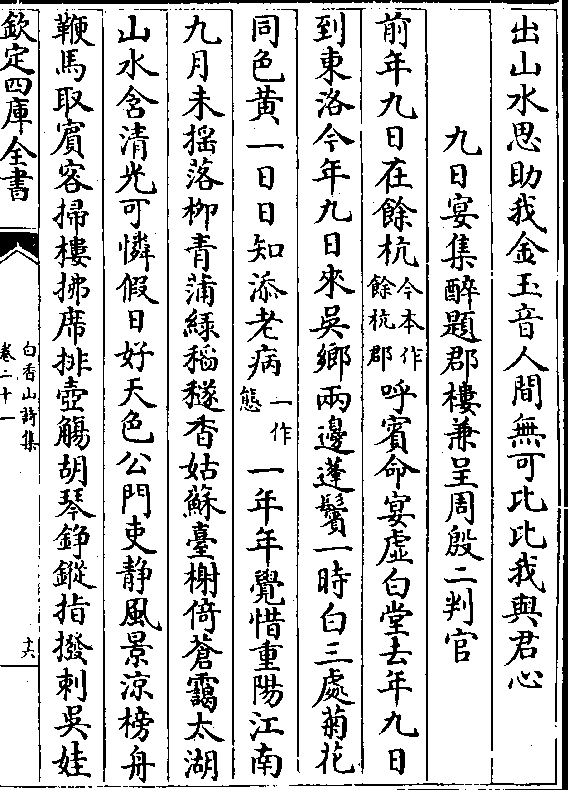 出山水思助我金玉音人間無可比比我與君心
九日宴集醉題郡樓兼呈周殷二判官
前年九日在餘杭今本作餘杭郡呼賓命宴虛白堂去年九日
到東洛今年九日來吳鄉兩邊蓬鬢一時白三處菊花
同色黃一日日知添老病一作態一年年覺惜重陽江南
九月未摇落柳青蒲緑稻穟香姑蘇臺榭倚蒼靄太湖
山水含清光可憐假日好天色公門吏静風景凉榜舟
鞭馬取賓客掃樓拂席排壺觴胡琴錚鏦指撥剌吳娃
欽定四庫全書
白香山詩集
卷二十一
十六